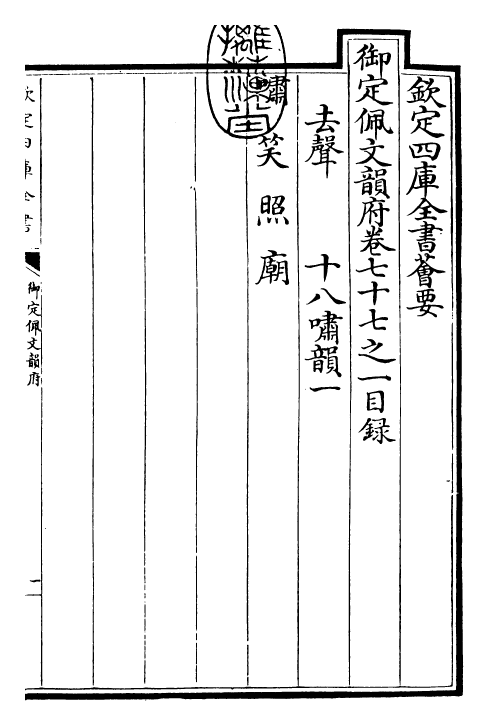 欽定四庫全書薈要
御定佩文韻府卷七十七之一目録
去聲　十八嘯韻一
嘯　笑　照　廟
欽定四庫全書
御定佩文韻府
一